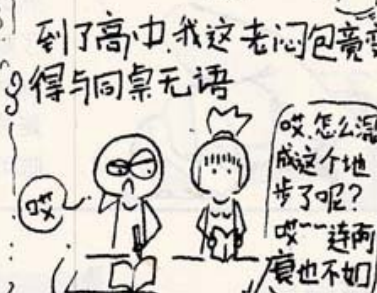 到了高中,我这老闷包竟变
得与同桌无语
哎
哎,怎么混
成这个地
步了呢?
哎~~连两
也不如